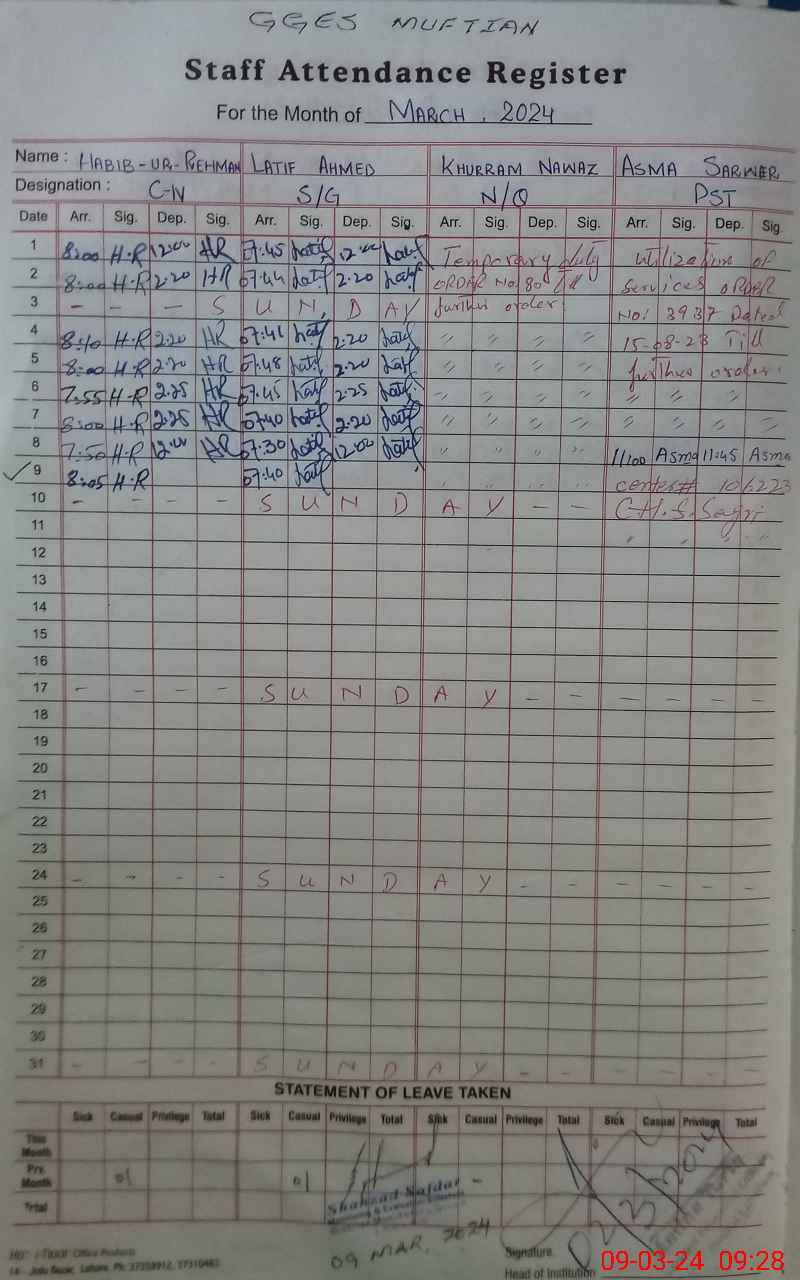 GGES MUFTIAN
Staff Attendance Register
For the Month of MARCH, 2024
Name : HABIB-UR-REHMAN LATIF AHMED KHURRAM NAWAZ ASMA SARWER
Designation : C-IV S/G N/Q PST
Date Arr. Sig. Dep. Sig. Arr. Sig. Dep. Sig. Arr. Sig. Dep. Sig. Arr. Sig. Dep. Sig.
1 8:00 H.R 12:00 HR 07:45 Latif 12:00 Latif Temporary duty utilization of
2 8:00 H.R 2:20 HR 07:44 Latif 2:20 Latif ORDER No. 80 till services ORDER
3 - - - S U N D A Y further order No: 3937 Dated
4 8:10 H.R 2:20 HR 07:41 Latif 2:20 Latif " " " " 15-08-23 Till
5 8:00 H.R 2:20 HR 07:48 Latif 2:20 Latif " " " " further order.
6 7:55 H.R 2:25 HR 07:45 Latif 2:25 Latif " " " " " " " "
7 8:00 H.R 2:25 HR 07:40 Latif 2:20 Latif " " " " " " " "
8 7:50 H.R 12:00 HR 07:30 Latif 12:00 Latif " " " " 11:00 Asma 11:45 Asma
✓9 8:05 H.R 07:40 Latif " " " " center# 106223
10 - - - - S U N D A Y - - G.H.S. Sagri
11 " " " "
12
13
14
15
16
17 - - - - S U N D A Y - - - - - -
18
19
20
21
22
23
24 - - - - S U N D A Y - - - - - -
25
26
27
28
29
30
31 - - - - S U N D A Y - - - - - -
STATEMENT OF LEAVE TAKEN
Sick Casual Privilege Total Sick Casual Privilege Total Sick Casual Privilege Total Sick Casual Privilege Total
This Month
Prv. Month 01 01 -
Total
Shahzad Safdar
09 MAR. 2024
02/3/2024
Office Products
14 - Urdu Bazar, Lahore. Ph: 37358912, 37310463
Signature.
Head of Institution
09-03-24 09:28